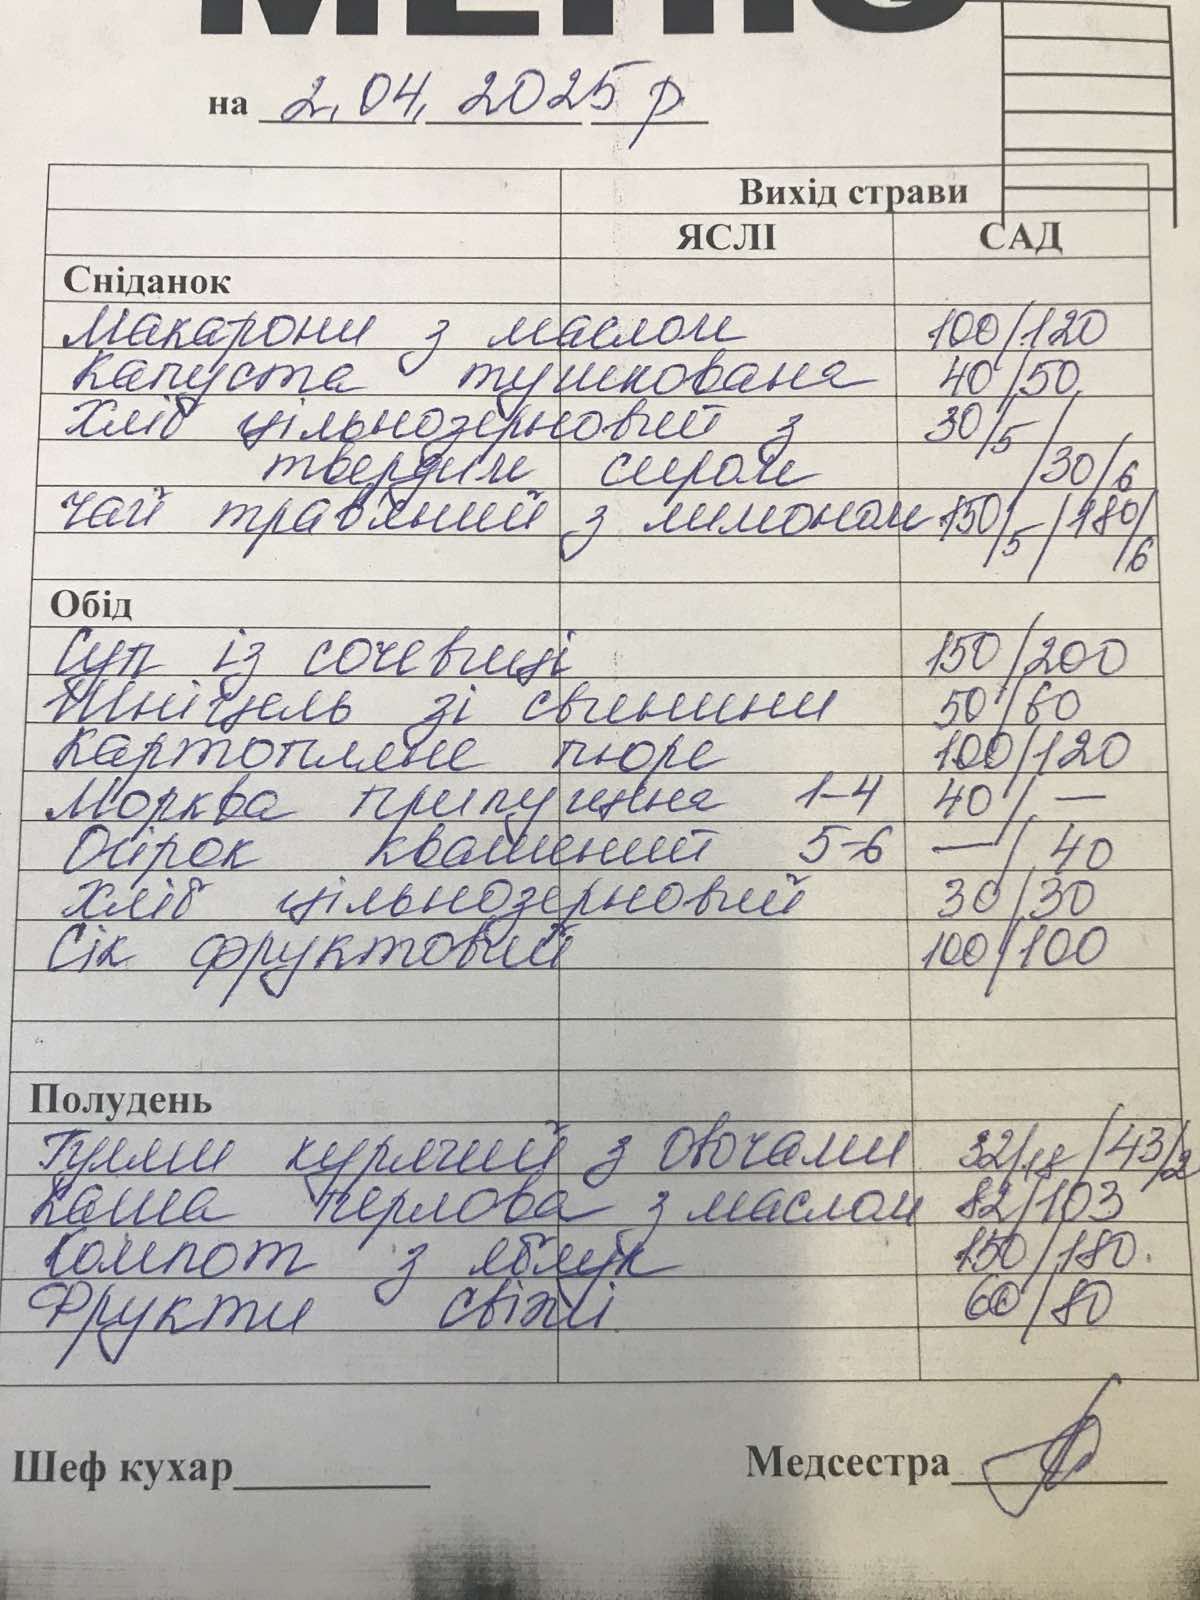 МЕНЮ
на 2.04. 2025 р
Вихід страви
ЯСЛІ САД
Сніданок
Макарони з маслом 100/120
Капуста тушкована 40/50
Хліб цільнозерновий з 30/5/
твердим сиром /30/6
Чай трав'яний з лимоном 150/5/180/6
Обід
Суп із сочевиці 150/200
Шніцель зі свинини 50/60
Картопляне пюре 100/120
Морква припущена 1-4 40/—
Огірок квашений 5-6 —/40
Хліб цільнозерновий 30/30
Сік фруктовий 100/100
Полудень
Гуляш курячий з овочами 32/18/43/2
Каша перлова з маслом 82/103
Компот з яблук 150/180.
Фрукти свіжі 60/80
Шеф кухар Медсестра